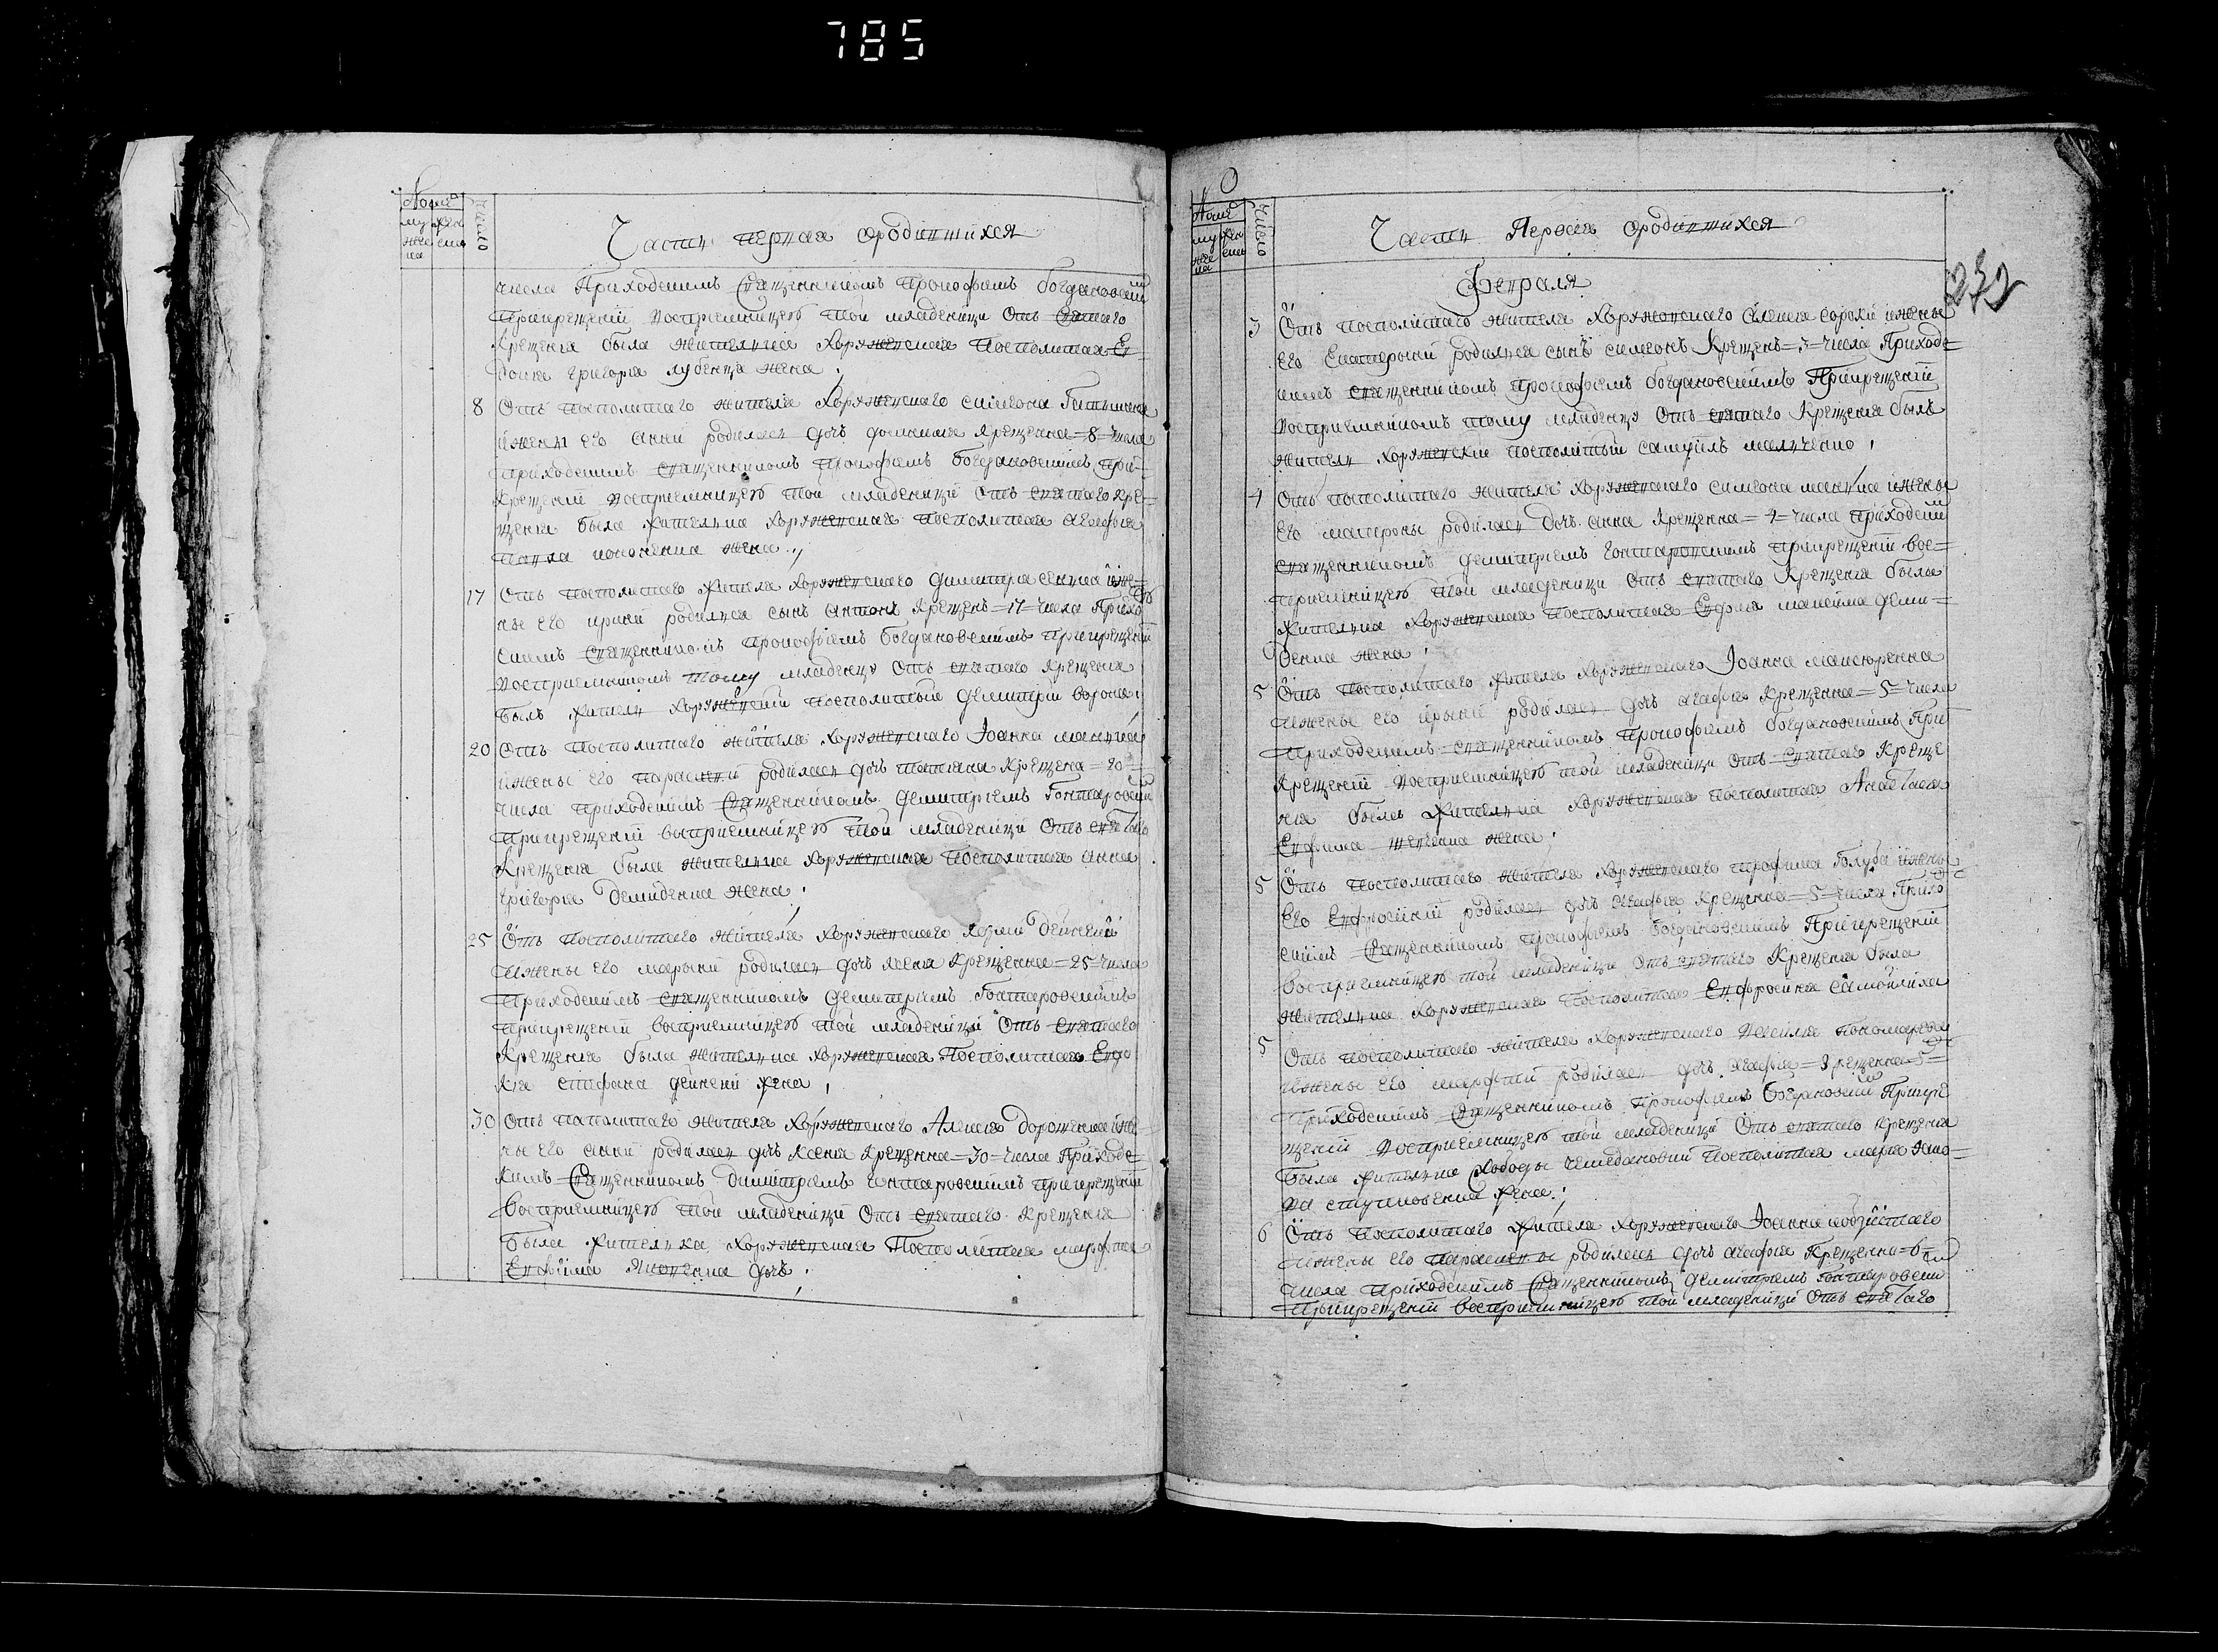 785
Число
Часть первая ородившихся
числа Приходскимъ Священникомъ Прокофиемъ Богдановски
Прикрещении Восприемницею той младеници Отъ Святаго
Крещения была жителька Хоружевская Посполитая
Григория Лубенца жена
8 Отъ посполитаго жителя Хоружевскаго Симеона
и жени его Анни родилась дочъ Крещенна=8=числа
приходскимъ священникомъ Прокофиемъ Богдановскимъ при-
крещении восприемницею той младеници Отъ святаго кре-
щения была жителька Хоружевская посполитая Агафия
Павла жена
17 Отъ посполитаго жителя Хоружевскаго Димитрия Сенка и же-
ны его Ирини родился сынъ Антонъ Крещенъ=17=числа Прихо
скимъ Священникомъ Прокофиемъ Богдановскимъ Прикрещении
Восприемникомъ тому младенцу Отъ святаго Крещения
былъ житель Хоружевский посполитый Демитрий Ворона
20 Отъ посполитаго жителя Хоружевскаго Иоанна
и жены его Параскеви родилась дочъ Татияна Крещена=20=
числа приходскимъ Священникомъ Демитриемъ Гонтаровски
Прикрещении восприемницею той младеници Отъ святаго
Крещения была жителька Хоружевская Посполитая Анна
Григория Демиденка жена
25 Отъ посполитаго жителя Хоружевскаго Дейнеки
и жены его Марыни родилась дочъ Ксения Крещенна=25=числа
Приходскимъ священникомъ Демитриемъ Гонтаровскимъ
Прикрещении восприемницею той младеници Отъ святаго
Крещения была жителька Хоружевская Посполитая Евдо
кия Стефана Дейнеки жена
30 Отъ посполитаго жителя Хоружевскаго Алексея Дорошенка и же
ны его Анни родилась дочъ Ксения Крещенна=30=числа Приходс
кимъ Священникомъ Димитриемъ Гонтаровскимъ прикрещении
Восприемницею той младеници Отъ святаго Крещения
была жителька Хоружевская Посполитая Марфа
Евфима дочъ
Число
Часть Первая ородившихся
Февраля
3 Отъ посполитаго жителя Хоружевскаго Алексея Сороки и жены
его Екатерыни родился сынъ Симеонъ Крещенъ=3=числа Приходс=
кимъ священникомъ Прокофиемъ Богдановскимъ Прикрещении
Восприемникомъ тому младенцу Отъ святаго Крещения былъ
житель Хоружевский посполитый Самуилъ Малченко
4 Отъ посполитаго жителя Хоружевскаго Симеона и жены
его Матроны родилась дочъ Анна Крещенна=4=числа приходски
священникомъ Демитриемъ Гонтаровскимъ прикрещении вос=
приемницею той младеници Отъ святаго Крещения была
жителька Хоружевская посполитая Максима Деми=
денка жена
5 Отъ посполитаго жителя Хоружевскаго Иоанна
и жены его Ирыни родилась дочъ Агафия Крещенна=5=числа
Приходскимъ священникомъ Прокофиемъ Богдановскимъ При
Крещении восприемницею той младеници Отъ святаго Креще
ния была жителька Хоружевская посполитая
Евфима жена
5 Отъ посполитаго жителя Хоружевскаго Трофима Голуба и жены
его Евфросинии родилась дочъ Агафия Крещенна=5=числа Прихо
скимъ Священникомъ Прокофиемъ Богдановскимъ Прикрещении
Восприемницею той младеници Отъ святаго Крещения была
жителька Хоружевская посполитая Евфросиния Самойлиха
5 Отъ посполитаго жителя Хоружевскаго Василия Пономарева
и жены его Марфии родилась дочъ Агафия=Крещенна=5=
Приходскимъ Священникомъ Прокофиемъ Богдановски Прикре
щении Восприемницею той младеници Отъ святаго Крещения
была жителька Слободы посполитая Мария
жена
6 Отъ посполитаго жителя Хоружевскаго Иоанна
и жены его Параскевы родилась дочъ Агафия Крещенна=6=
числа приходскимъ Священникомъ Демитриемъ Гонтаровски
Прикрещении восприемницею той младеници Отъ святаго